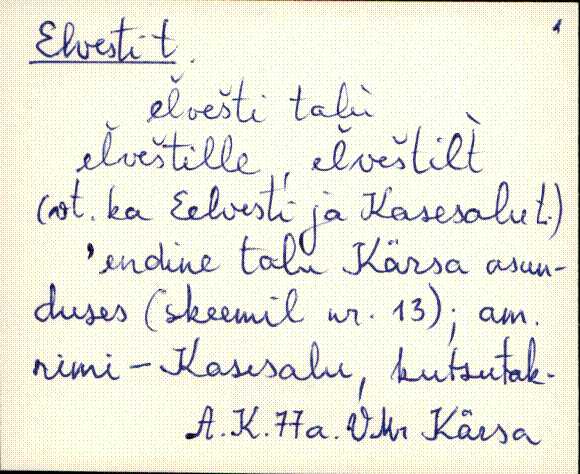 1
Elvesti t.
el̆vešti talù
el̆veštille, el̆veštil̀t
(vt. ka Eelvesti ja Kasesalu t.)
'endine talu Kärsa asun-
duses (skeemil nr. 13); am.
nimi - Kasesalu, kutsutak-
A.K. 77a. VMr Kärsa